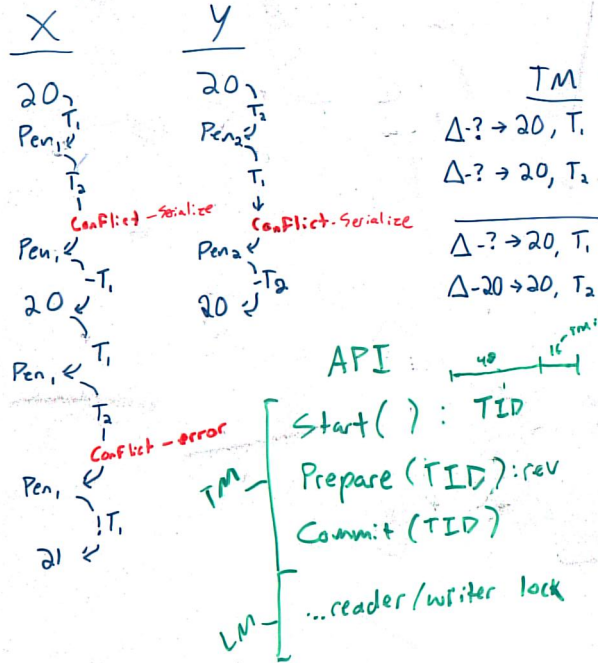 X
20
T₁
Pen₁
T₂
Conflict-Serialize
Pen₁
-T₁
20
T₁
Pen₁
T₂
Conflict-error
Pen₁
!T₁
21
Y
20
T₂
Pen₂
T₁
Conflict-Serialize
Pen₂
-T₂
20
TM
Δ-? → 20, T₁
Δ-? → 20, T₂
Δ-? → 20, T₁
Δ-20 → 20, T₂
API
48 16
Start( ) : TID
TM
Prepare (TID):rev
Commit (TID)
LM
...reader/writer lock